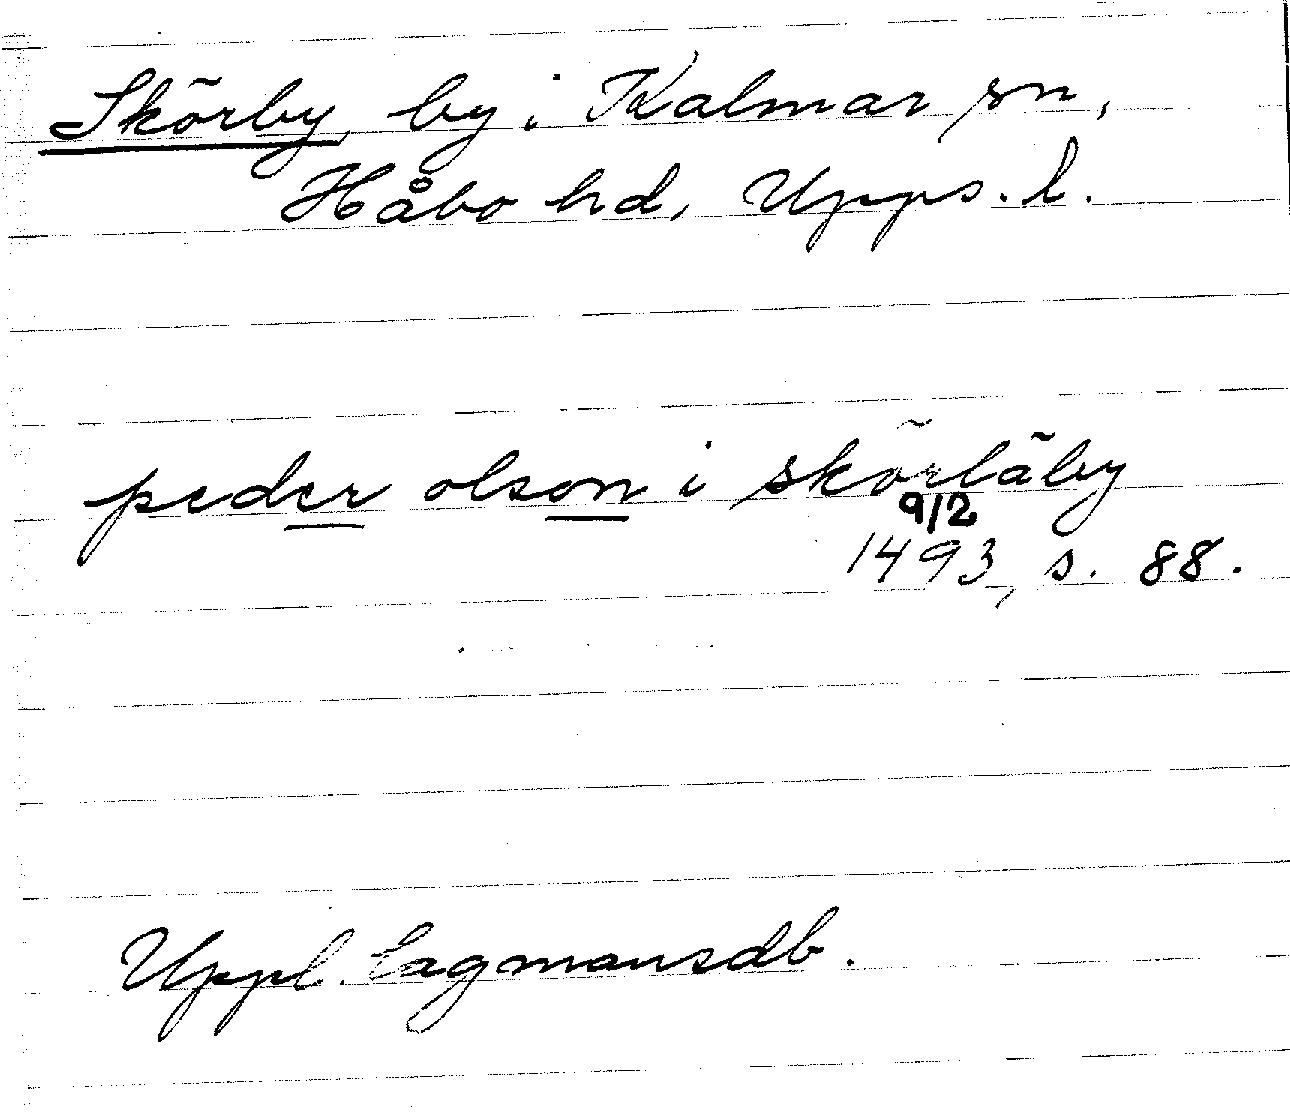 Skörby, by i Kalmar sn,
Håbo hd, Upps. l.
peder olson i skörläby
9/2
1493, s. 88.
Uppl. Lagmansdb.